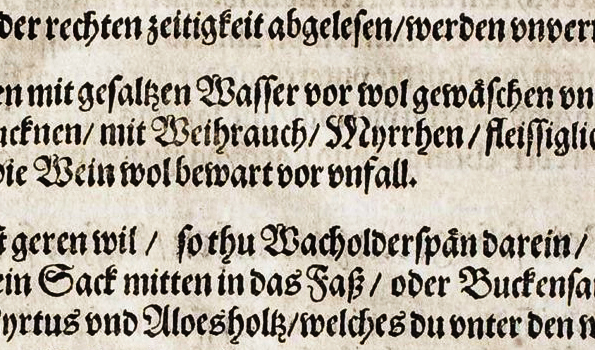 der rechten zeitigkeit abgelesen/werden vnver
en mit gesaltzen Wasser vor wol gewäschen vn
ucknen/ mit Weihrauch/ Myrrhen/ fleissiglic
die Wein wol bewart vor vnfall.
geren wil / so thu Wacholderspän darein/
ein Sack mitten in das Faß/ oder Buckensa
yrtus vnd Aloesholtz/welches du vnter den w